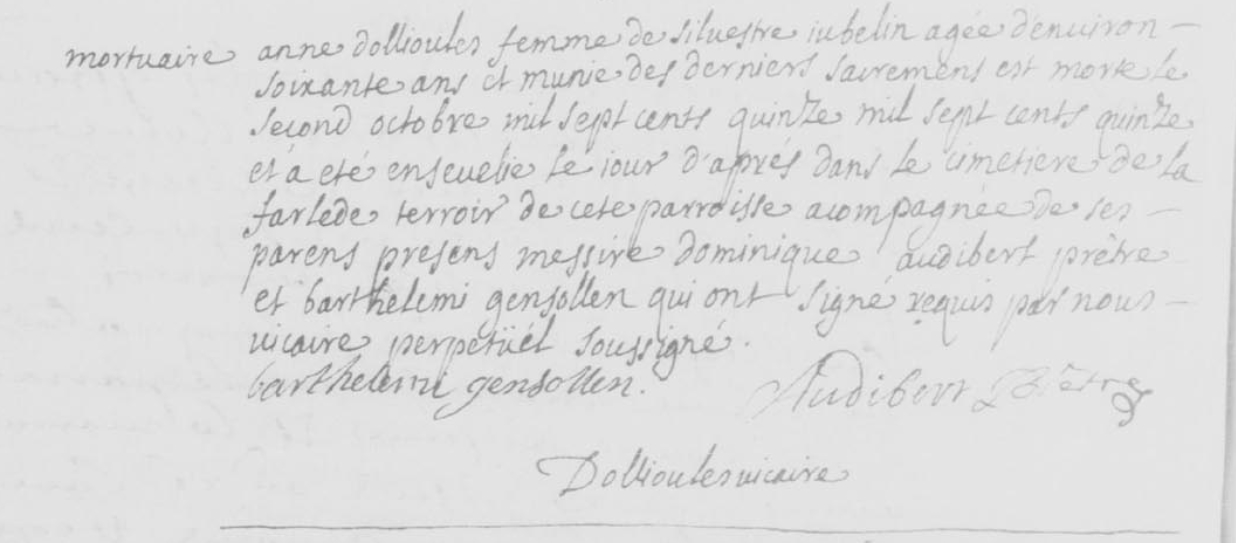 mortuaire anne dollioules femme de silvestre iubelin agée d'environ –
soixante ans et munie des derniers sacremens est morte le
second octobre mil sept cents quinze mil sept cents quinze
et a eté ensevelie le iour d'aprés dans le cimetiere de la
farlede terroir de cete parroisse acompagnée de ses –
parens presens messire dominique audibert prêtre
et barthelemi gensollen qui ont signé requis par nous –
vicaire perpetüel soussigné.
barthelemi gensollen. Audibert Prêtre
Dollioules vicaire